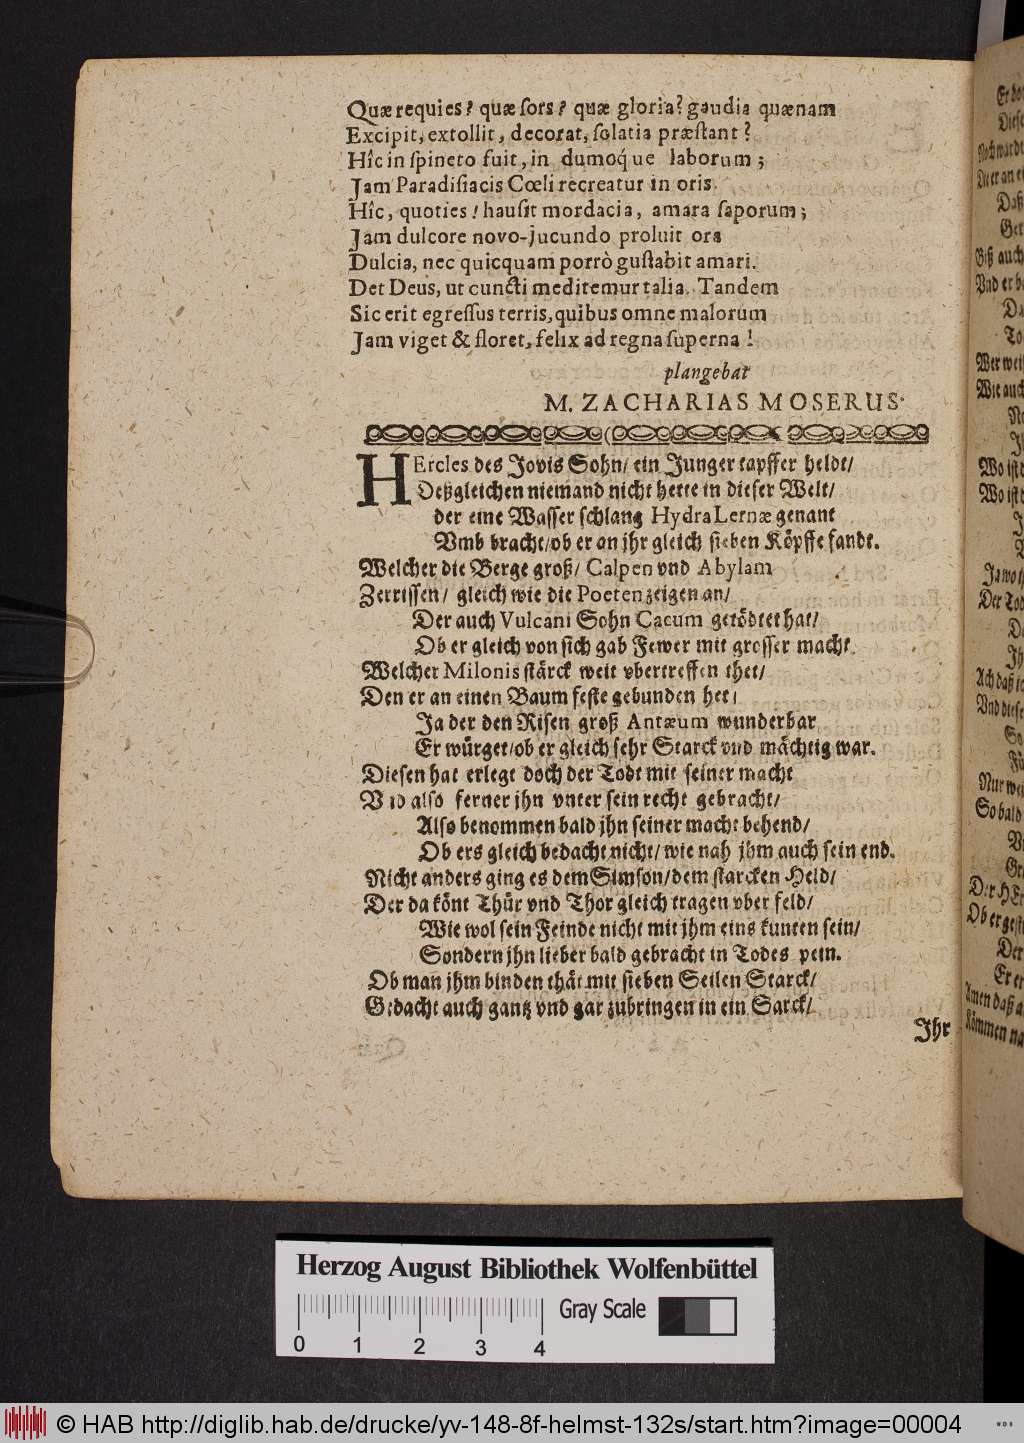 Quæ requies? quæ sors? quæ gloria? gaudia quænam
Excipit, extollit, decorat, solatia præstant?
Hîc in spineto fuit, in dumoq́ue laborum;
Jam Paradisiacis Cœli recreatur in oris.
Hîc, quoties! hausit mordacia, amara saporum;
Jam dulcore novo-jucundo proluit ora
Dulcia, nec quicquam porrò gustabit amari.
Det Deus, ut cuncti meditemur talia. Tandem
Sic erit egressus terris, quibus omne malorum
Jam viget & floret, felix ad regna superna!
plangebat
M. ZACHARIAS MOSERUS.
HErcles des Jovis Sohn/ ein Junger tapffer heldt/
Deßgleichen niemand nicht hette in dieser Welt/
der eine Wasser schlang Hydra Lernæ genant
Vmb bracht/ ob er an jhr gleich sieben Köpffe fandt.
Welcher die Berge groß/ Calpen vnd Abylam
Zerrissen/ gleich wie die Poeten zeigen an/
Der auch Vulcani Sohn Cacum getödtet hat/
Ob er gleich von sich gab Fewer mit grosser macht.
Welcher Milonis stärck weit vbertreffen thet/
Den er an einen Baum feste gebunden het/
Ja der den Risen groß Antæum wunderbar
Er würget/ ob er gleich sehr Starck vnd mächtig war.
Diesen hat erlegt doch der Todt mit seiner macht
Vnd also ferner jhn vnter sein recht gebracht/
Also benommen bald jhn seiner macht behend/
Ob ers gleich bedacht nicht/ wie nah jhm auch sein end.
Nicht anders ging es dem Simson/ dem starcken Held/
Der da könt Thür vnd Thor gleich tragen vber feld/
Wie wol sein Feinde nicht mit jhm eins kunten sein/
Sondern jhn lieber bald gebracht in Todes pein.
Ob man jhm binden thät mit sieben Seilen Starck/
Gedacht auch gantz vnd gar zubringen in ein Sarck/
Jhr
Herzog August Bibliothek Wolfenbüttel
Gray Scale
0 1 2 3 4
© HAB http://diglib.hab.de/drucke/yv-148-8f-helmst-132s/start.htm?image=00004